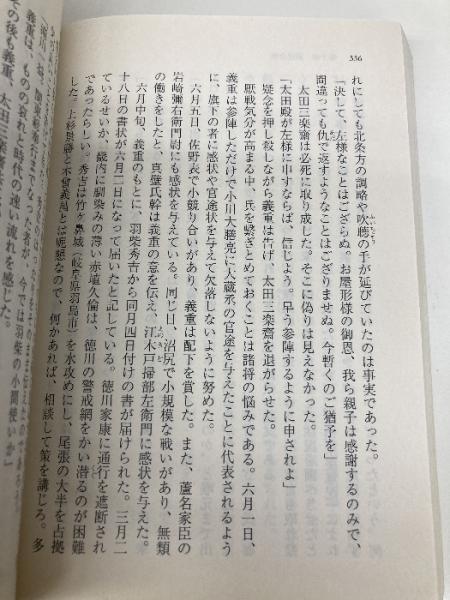 336
れにしても北条方の調略や吹聴の手が延びていたのは事実であった。
「決して、左様なことはござらぬ。お屋形様の御恩、我ら親子は感謝するのみで、
間違っても仇で返すようなことはございませぬ。今暫くのご猶予を」
太田三楽斎は必死に取り成した。そこに偽りは見えなかった。
「太田殿が左様に申すならば、信じよう。早う参陣するように申されよ」
疑念を押し殺しながら義重は告げ、太田三楽斎を退がらせた。
厭戦気分が高まる中、兵を繋ぎとめておくことは諸将の悩みである。六月一日、
義重は参陣しただけで小川大膳亮に大蔵丞の官途を与えたことに代表されるよう
に、旗下の者に感状や官途状を与えて欠落しないように努めた。
六月五日、佐野表で小競り合いがあり、義重は配下を賞した。また、蘆名家臣の
岩崎彌右衛門尉にも感状を与えている。同じ日、沼尻で小規模な戦いがあり、無類
の働きをしたと、真壁氏幹は義重の意を伝え、江木戸掃部左衛門に感状を与えた。
六月中旬、義重のもとに、羽柴秀吉から同月四日付けの書が届けられた。三月二
十八日の書状が六月二日になって届いたと記している。徳川家康に通行を遮断され
ているせいか、畿内に馴染みの薄い赤塩久倫は、徳川の警戒網をかい潜るのが困難
であったらしい。秀吉は竹ヶ鼻城(岐阜県羽島市)を水攻めにし、尾張の大半を占拠
した。上杉景勝と不曾義昌とは昵懇なので、何かあれば、相談して策を講じろ。多
義重は、ものの哀れと時代の速い流れを感じた。
その後も義重、太田三楽斎